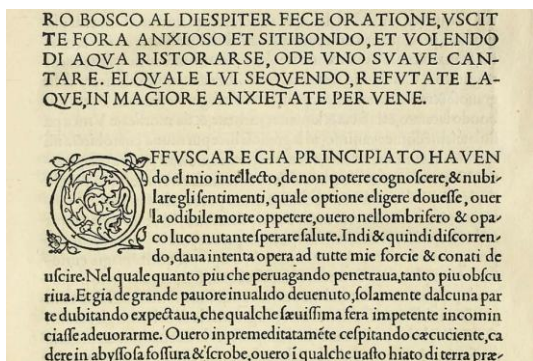 RO BOSCO AL DIESPITER FECE ORATIONE, VSCIT
TE FORA ANXIOSO ET SITIBONDO, ET VOLENDO
DI AQVA RISTORARSE, ODE VNO SVAVE CAN-
TARE. ELQVALE LVI SEQVENDO, REFVTATE LA-
QVE, IN MAGIORE ANXIETATE PERVENE.
OFFVSCARE GIA PRINCIPIATO HAVEN
do el mio intellecto, de non potere cognoſcere, & nubi-
lare gli ſentimenti, quale optione eligere doueſſe, ouer
la odibile morte oppetere, ouero nellombrifero & opa-
co luco nutante ſperare ſalute. Indi & quindi diſcorren-
do, daua intenta opera ad tutte mie forcie & conati de
uſcire. Nel quale quanto piu che peruagando penetraua, tanto piu obſcu
riua. Et gia de grande pauore inualido deuenuto, ſolamente dalcuna par
te dubitando expectaua, che qualche ſæuiſſima fera impetente incomin
ciaſſe adeuorarme. Ouero inpremeditatamēte ceſpitando cæcuciente, ca
dere in abyſſoſa foſſura & ſcrobe, ouero ī qualche uaſto hiato di terra præ-